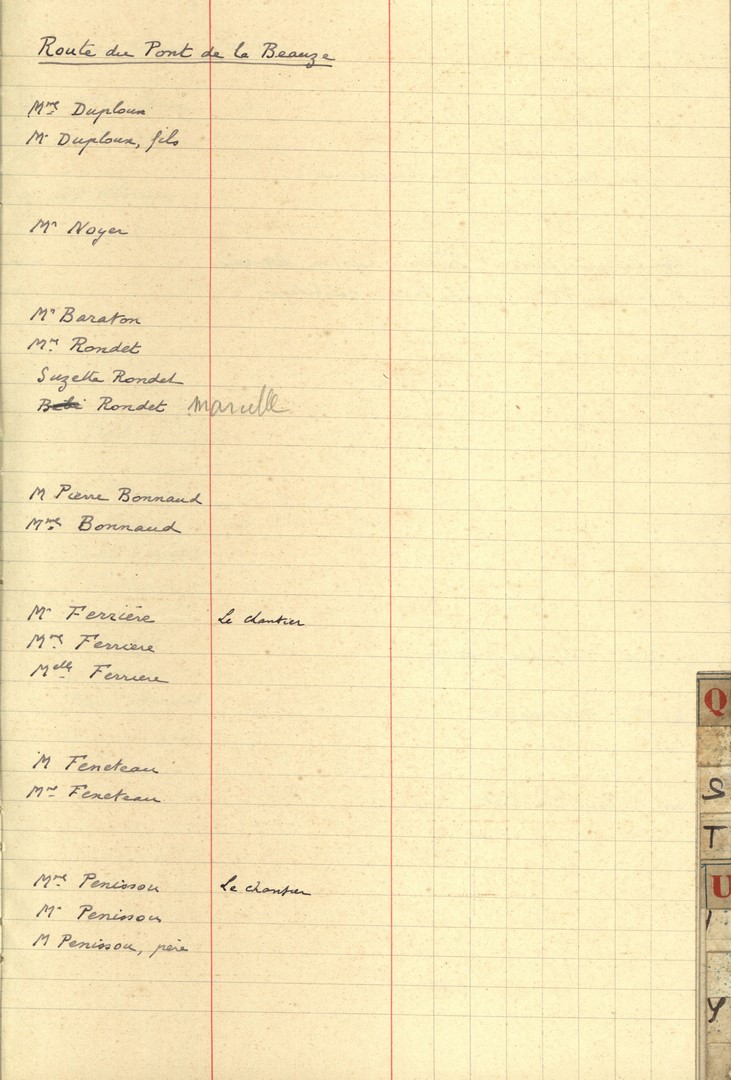 Route du Pont de la Beauze
Mme Duploux
Mr Duploux, fils
Mr Noyer
Mr Baraton
Mme Rondet
Suzette Rondet
Bébé Rondet Marcelle
M Pierre Bonnaud
Mme Bonnaud
Mr Ferrière Le chantier
Mme Ferriere
Melle Ferriere
M Feneteau
Mme Feneteau
Mme Penissou Le chantier
Mr Penissou
M Penissou, père
Q
S
T
U
Y